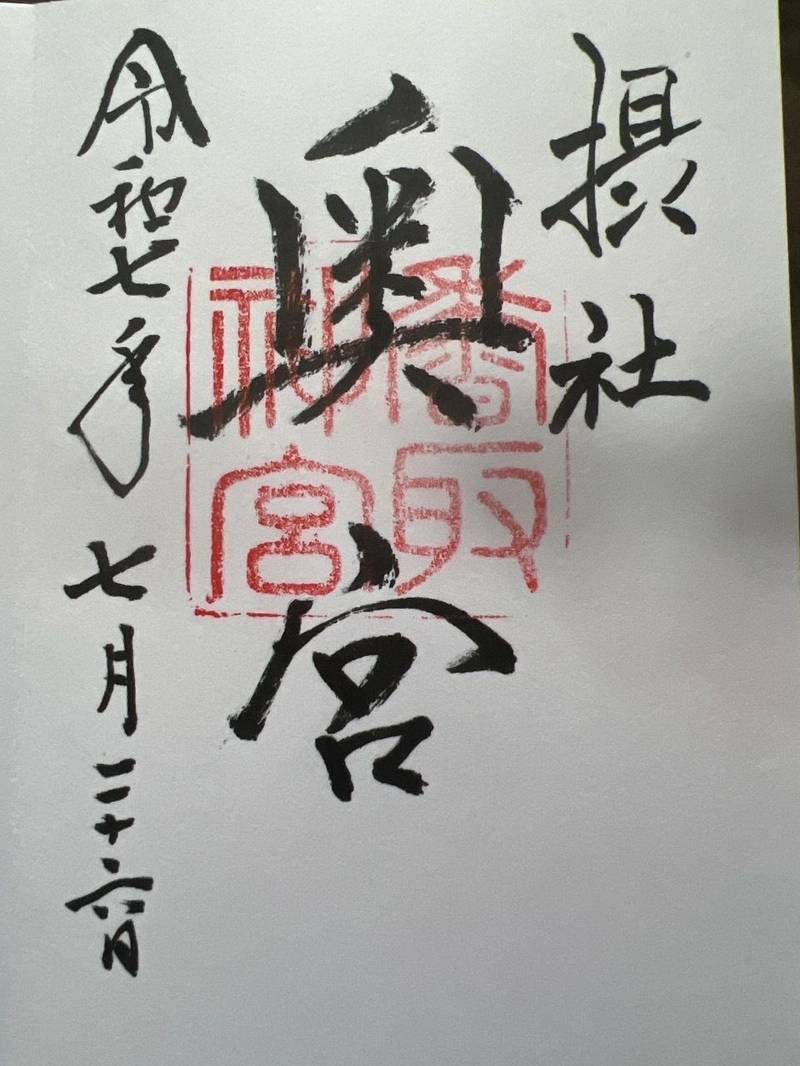 摂社
奥宮
香取神宮
令和七年七月二十六日